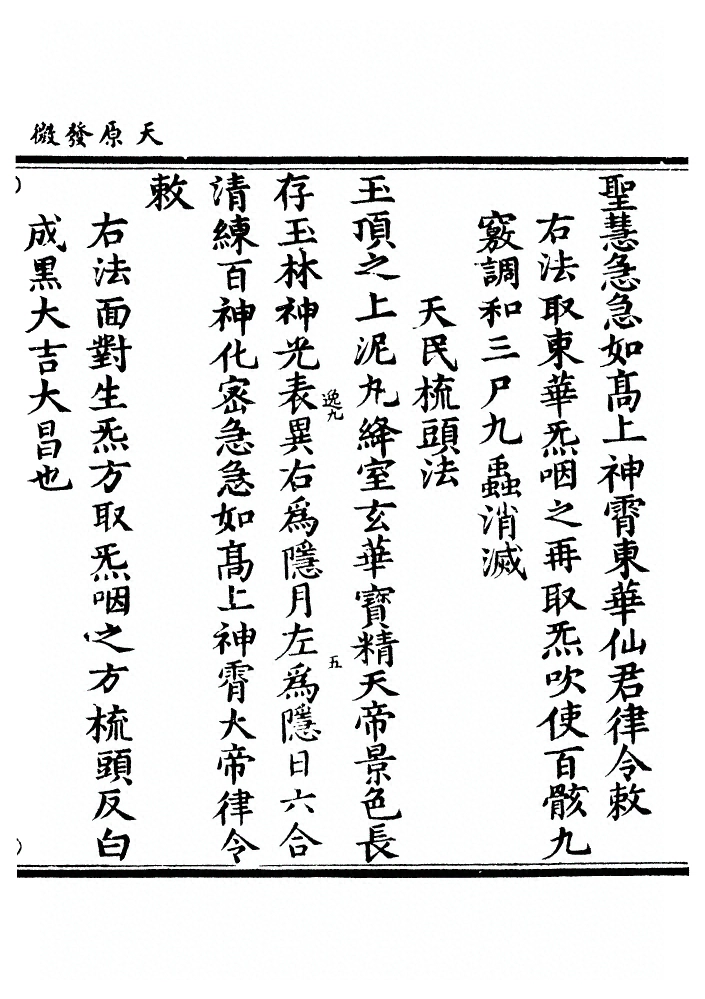 天原發微
聖慧急急如髙上神霄東華仙君律令敕
右法取東華炁咽之再取炁吹使百骸九
竅調和三尸九蟲消滅
天民梳頭法
玉頂之上泥丸絳室玄華寶精天帝景色長
存玉林神光表異右爲隱月左爲隱日六合
清練百神化宻急急如髙上神霄大帝律令
敕
右法面對生炁方取炁咽之方梳頭反白
成黒大吉大昌也
逸九
五